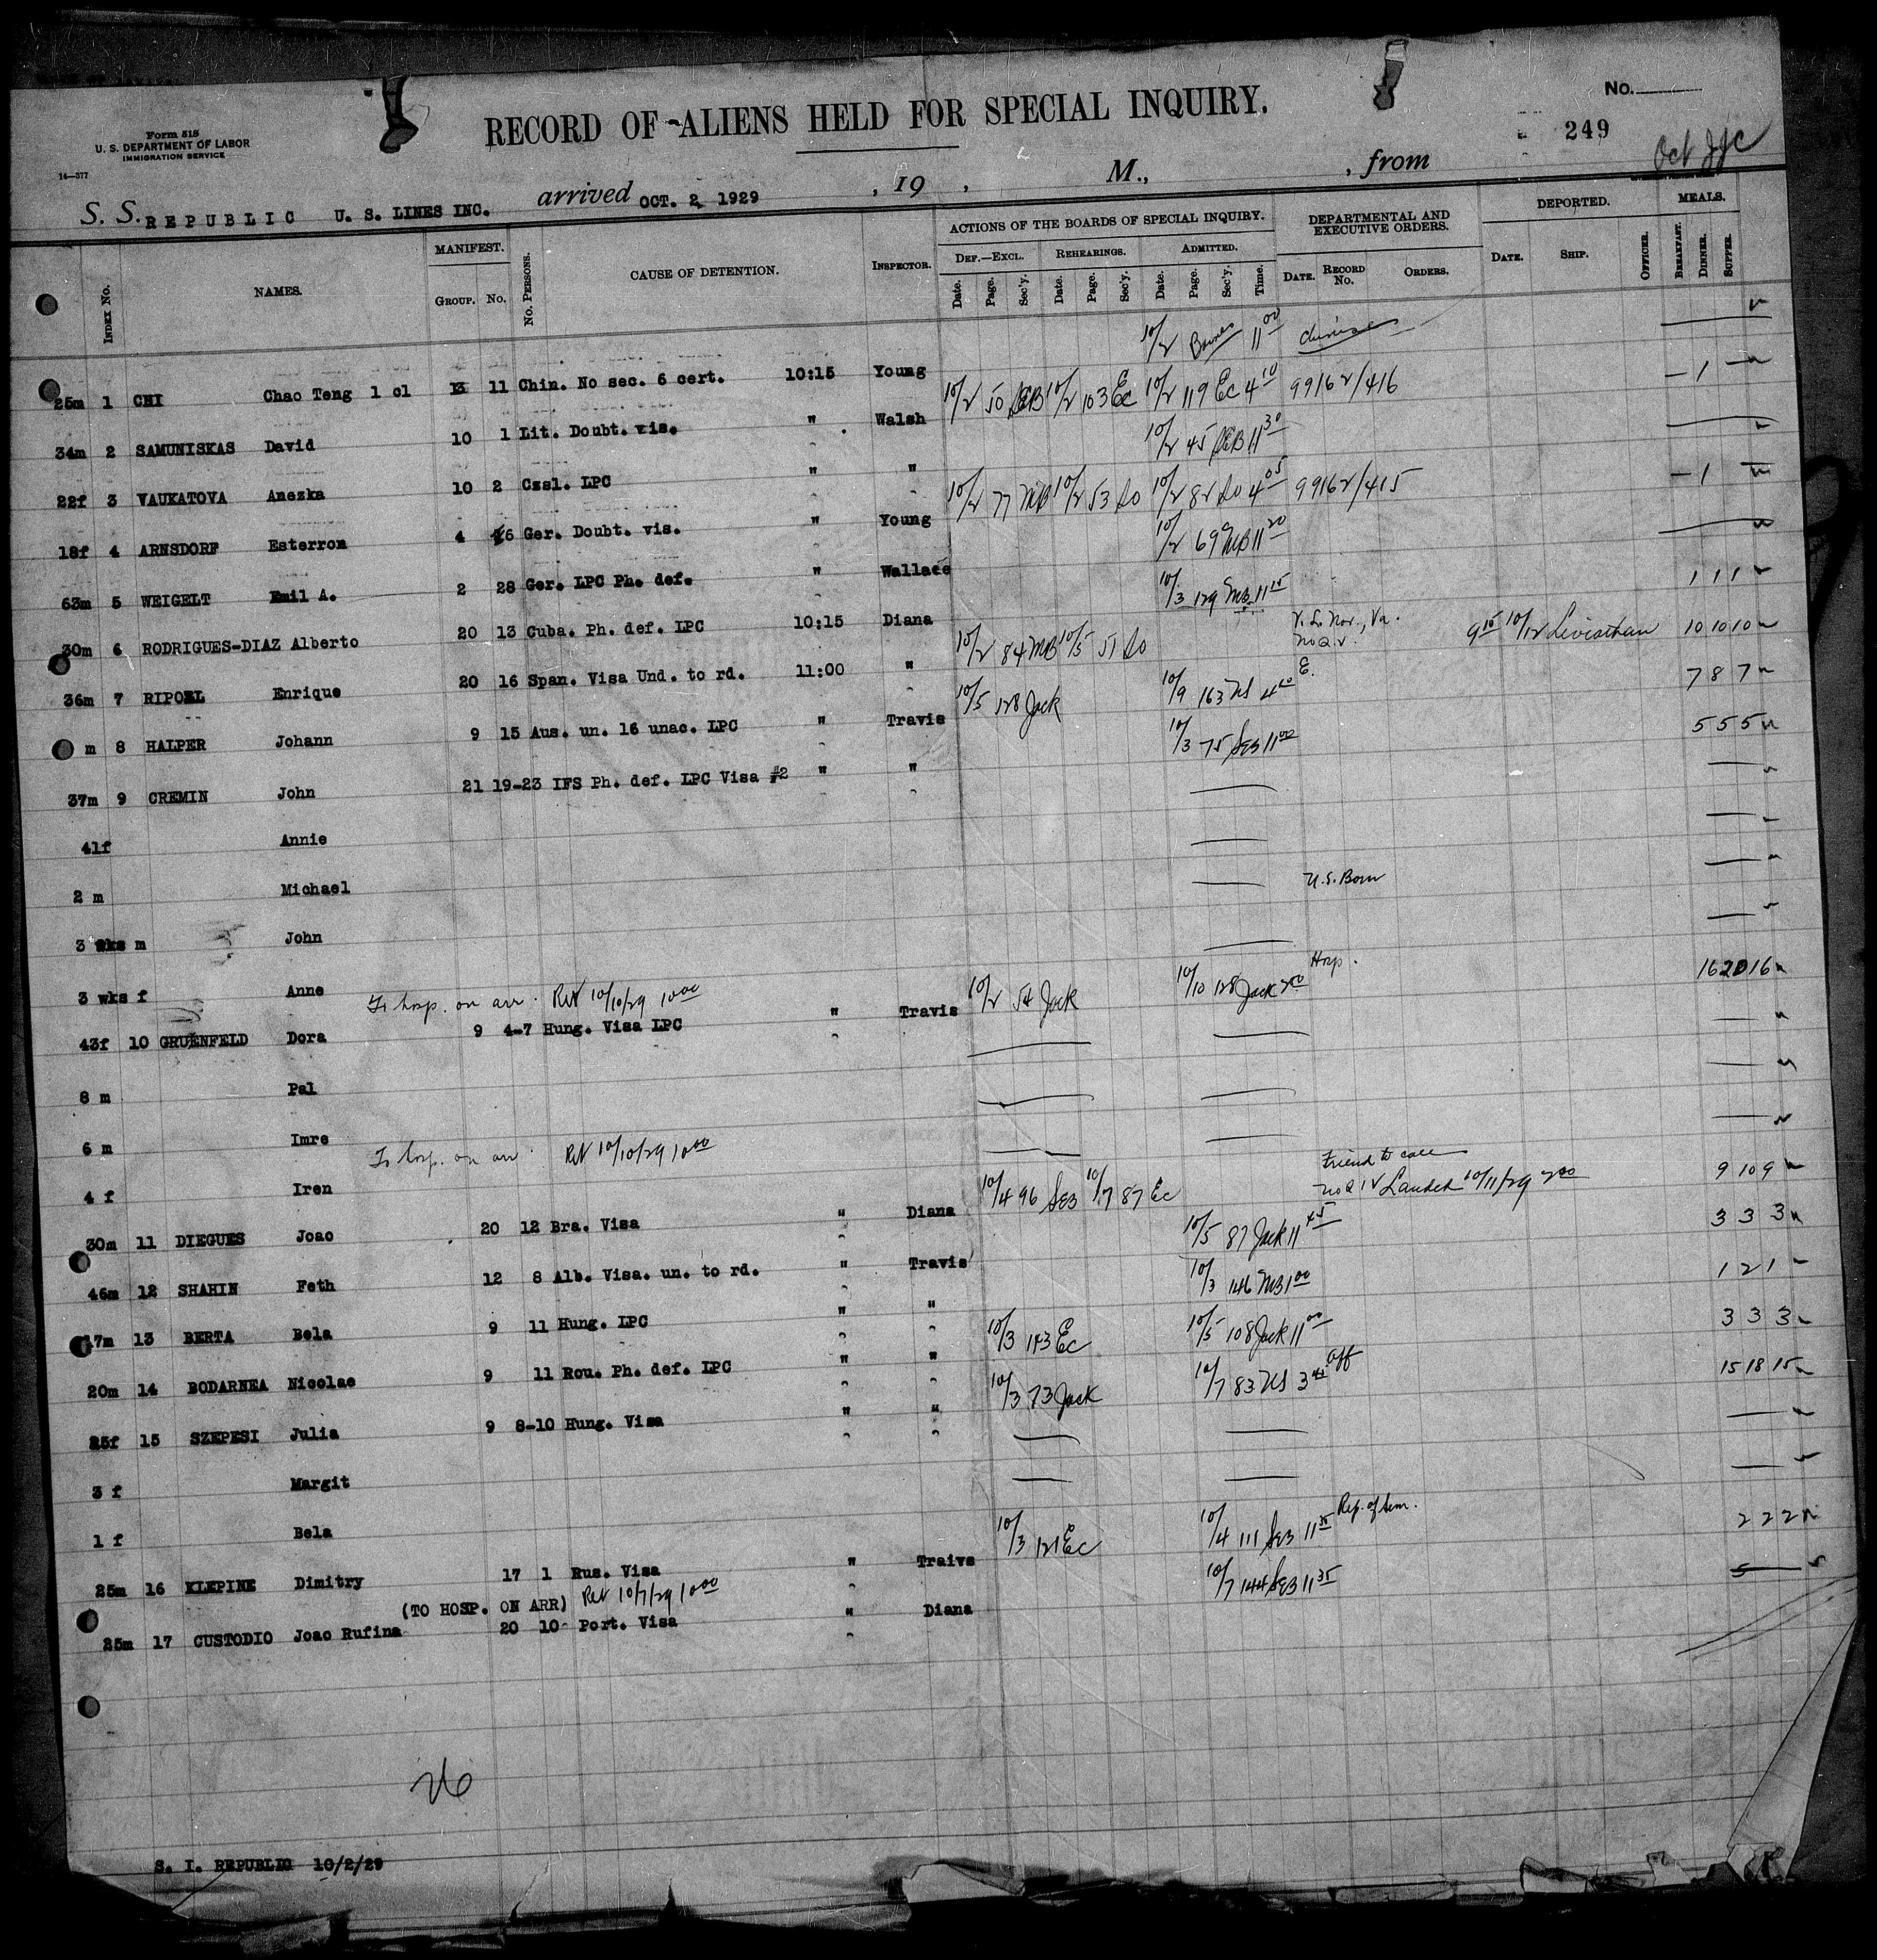 No.
Form 515
U. S. DEPARTMENT OF LABOR
IMMIGRATION SERVICE
14—377
RECORD OF ALIENS HELD FOR SPECIAL INQUIRY.
249
Oct
S. S. REPUBLIC U. S. LINES INC. arrived OCT. 2 1929, 19 , M., , from
INDEX No. NAMES. MANIFEST. GROUP. No. No. PERSONS. CAUSE OF DETENTION. INSPECTOR. ACTIONS OF THE BOARDS OF SPECIAL INQUIRY. DEF.—EXCL. Date. Page. Sec'y. REHEARINGS. Date. Page. Sec'y. ADMITTED. Date. Page. Sec'y. Time. DEPARTMENTAL AND EXECUTIVE ORDERS. DATE. RECORD No. ORDERS. DEPORTED. DATE. SHIP. OFFICER. MEALS. BREAKFAST. DINNER. SUPPER.
10/2 11 00
25m 1 CHI Chao Teng 1 cl 11 Chin. No sec. 6 cert. 10:15 Young 10/2 50 10/2 103 Ec 10/2 119 Ec 4 10 99162/416 — 1 —
34m 2 SAMUNISKAS David 10 1 Lit. Doubt. vis. " Walsh 10/2 45 11 30
22f 3 VAUKATOVA Anezka 10 2 Czsl. LPC " " 10/2 77 MB 10/2 53 10/2 82 4 05 99162/415 — 1 —
18f 4 ARNSDORF Esterron 4 6 Ger. Doubt. vis. " Young 10/2 69 MB 11 20
63m 5 WEIGELT Emil A. 2 28 Ger. LPC Ph. def. " Wallace 10/3 129 MB 11 15 1 1 1
30m 6 RODRIGUES-DIAZ Alberto 20 13 Cuba. Ph. def. LPC 10:15 Diana 10/2 84 MB 10/5 51 9 15 10/12 Leviathan 10 10 10
36m 7 RIPOEL Enrique 20 16 Span. Visa Und. to rd. 11:00 " 10/5 128 Jack 10/9 163 7 8 7
m 8 HALPER Johann 9 15 Aus. un. 16 unac. LPC " Travis 10/3 75 SEB 11 00 5 5 5
37m 9 CREMIN John 21 19-23 IFS Ph. def. LPC Visa #2 " "
41f Annie
2 m Michael U.S. Born
3 wks m John
3 wks f Anne
To hosp. on arr. Ret 10/10/29 10 00
43f 10 GRUENFELD Dora 9 4-7 Hung. Visa LPC " Travis 10/2 54 Jack 10/10 128 Jack 2 00 Hosp. 16 20 16
8 m Pal
6 m Imre
To hosp. on arr. Ret 10/10/29 10 00
4 f Iren
30m 11 DIEGUES Joao 20 12 Bra. Visa " Diana 10/4 96 SEB 10/7 87 Ec Friend to call 10/11/29 9 10 9
46m 12 SHAHIN Feth 12 8 Alb. Visa. un. to rd. " Travis 10/5 87 Jack 11 45 3 3 3
17m 13 BERTA Bela 9 11 Hung. LPC " " 10/3 146 MB 1 00 1 2 1
20m 14 BODARNEA Nicolae 9 11 Rou. Ph. def. LPC " " 10/3 143 Ec 10/5 108 Jack 11 00 3 3 3
25f 15 SZEPESI Julia 9 8-10 Hung. Visa " " 10/3 73 Jack 10/7 83 Off 15 18 15
3 f Margit
1 f Bela
25m 16 KLEPINE Dimitry 17 1 Rus. Visa " Traivs 10/3 121 Ec 10/4 111 SEB 11 2 2 2
(TO HOSP. ON ARR) Ret 10/7/29 10 00
25m 17 CUSTODIO Joao Rufina 20 10 Port. Visa " Diana 10/7 144 SEB 11 35
26
S. I. REPUBLIC 10/2/29